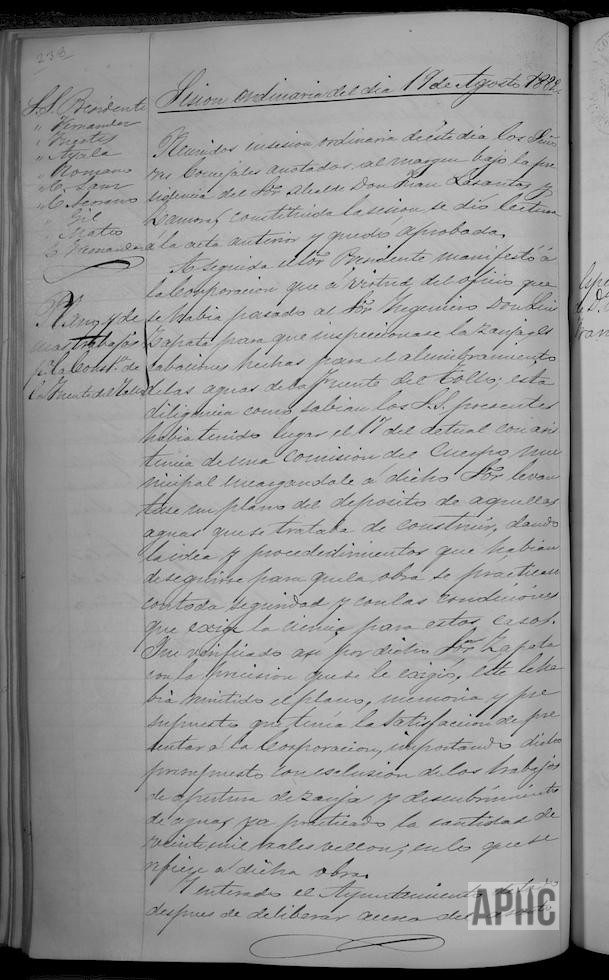 238
Sesion ordinaria del dia 19 de Agosto 1882.
S.S. Presidente
" Fernandez
" Ayala
" Romano
" C. Sanz
" C. Serrano
" Gil
" Mateo
C. Fernandez
Reunidos en sesion ordinaria de este dia los Seño
res Concejales anotados al margen bajo la pre
sidencia del Sor. Alcalde Don Juan Lasantas y
Zamora, constituida la sesion, se dió lectura
a la acta anterior y quedó aprobada.
Plano y de
mas trabajos
pa. la Constn. de
la Fuente del Tollo
A seguida el Sor. Presidente manifestó á
la Corporacion que á virtud del oficio que
se habia pasado al Sor. Ingeniero Don Luis
Zapata para que inspeccionase la zanja y es
cabaciones hechas para el alumbramiento
de las aguas de la Fuente del Tollo; esta
diligencia como sabian los S.S. presentes
habia tenido lugar el 17 del actual con asis
tencia de una comision del Cuerpo mu
nicipal encargandole á dicho Sor. levan
tase un plano del deposito de aquellas
aguas que se trataba de construir, dando
la idea y procedimientos que habian
de seguirse para que la obra se practicase
con toda seguridad y con las condiciones
que exige la ciencia para estos casos.
Fue verificado asi por dicho Sor. Zapata
con la precision que se le exigió, este le ha
bia remitido el plano, memoria y pre
supuesto que tenia la satisfaccion de pre
sentar á la Corporacion, importando dicho
presupuesto con esclusion de los trabajos
de apertura de zanja y descubrimiento
de aguas ya practicado la cantidad de
veinte mil reales vellon, en lo que se
refiere á dicha obra.
Y enterado el Ayuntamiento de todo
despues de deliberar acerca del
APHC